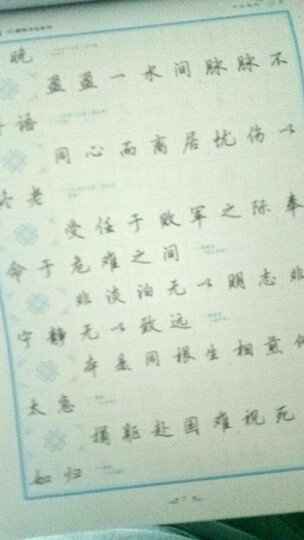 晚
盈盈一水间脉脉不
语
同心而离居忧伤以
老
受任于败军之际奉
命于危难之间
非淡泊无以明志非
宁静无以致远
本是同根生相煎何
太急
捐躯赴国难视死
如归